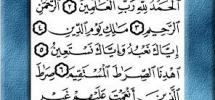 الْحَمْدُ لِلَّهِ رَبِّ الْعَالَمِينَ ٢ الرَّحْمَٰنِ
الرَّحِيمِ ٣ مَالِكِ يَوْمِ الدِّينِ ٤
إِيَّاكَ نَعْبُدُ وَإِيَّاكَ نَسْتَعِينُ ٥
اهْدِنَا الصِّرَاطَ الْمُسْتَقِيمَ ٦ صِرَاطَ
الَّذِينَ أَنْعَمْتَ عَلَيْهِمْ غَيْرِ